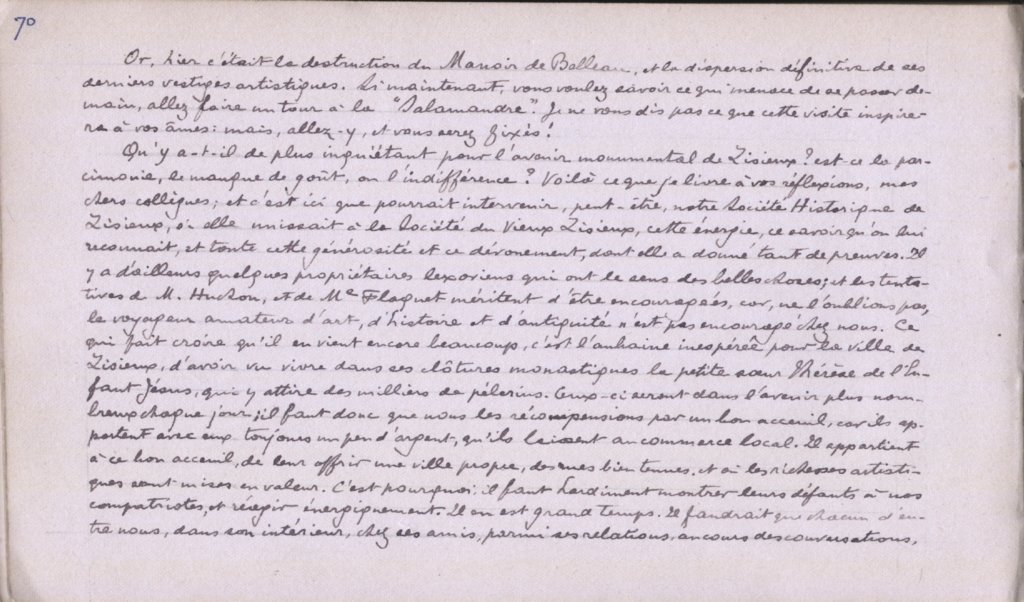 70
Or, hier c'était la destruction du Manoir de Belleau, et la dispersion définitive de ses
derniers vestiges artistiques. Si maintenant, vous voulez savoir ce qui menace de se passer de-
main, allez faire un tour à la "Salamandre". Je ne vous dis pas ce que cette visite inspire-
ra à vos âmes: mais, allez-y, et vous serez fixés!
Qu'y a-t-il de plus inquiétant pour l'avenir monumental de Lisieux? est-ce la par-
cimonie, le manque de goût, ou l'indifférence? Voilà ce que je livre à vos réflexions, mes
chers collègues; et c'est ici que pourrait intervenir, peut-être, notre Société Historique de
Lisieux, si elle unissait à la Société du Vieux Lisieux, cette énergie, ce savoir qu'on lui
reconnait, et toute cette générosité et ce dévouement, dont elle a donné tant de preuves. Il
y a d'ailleurs quelques propriétaires lexoviens qui ont le sens des belles choses; et les tenta-
tives de M. Huchon, et de Me Flaguet méritent d'être encouragées, car, ne l'oublions pas,
le voyageur amateur d'art, d'histoire et d'antiquité n'est pas encouragé chez nous. Ce
qui fait croire qu'il en vient encore beaucoup, c'est l'aubaine inespérée pour la ville de
Lisieux, d'avoir vu vivre dans ses clôtures monastiques la petite sœur Thérèse de l'En-
fant Jésus, qui y attire des milliers de pèlerins. Ceux-ci seront dans l'avenir plus nom-
breux chaque jour; il faut donc que nous les récompensions par un bon acceuil, car ils ap-
portent avec eux toujours un peu d'argent, qu'ils laissent au commerce local. Il appartient
à ce bon acceuil, de leur offrir une ville propre, des rues bien tenues, et où les richesses artisti-
ques sont mises en valeur. C'est pourquoi il faut hardiment montrer leurs défauts à nos
compatriotes, et réagir énergiquement. Il en est grand temps. Il faudrait que chacun d'en-
tre nous, dans son intérieur, chez ses amis, parmi ses relations, au cours des conversations,